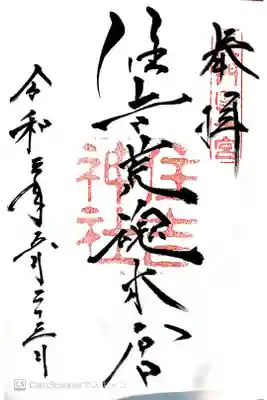 奉拝
住吉荒魂本宮
住吉
神社
令和三年五月二十三日
CS CamScannerでスキャン